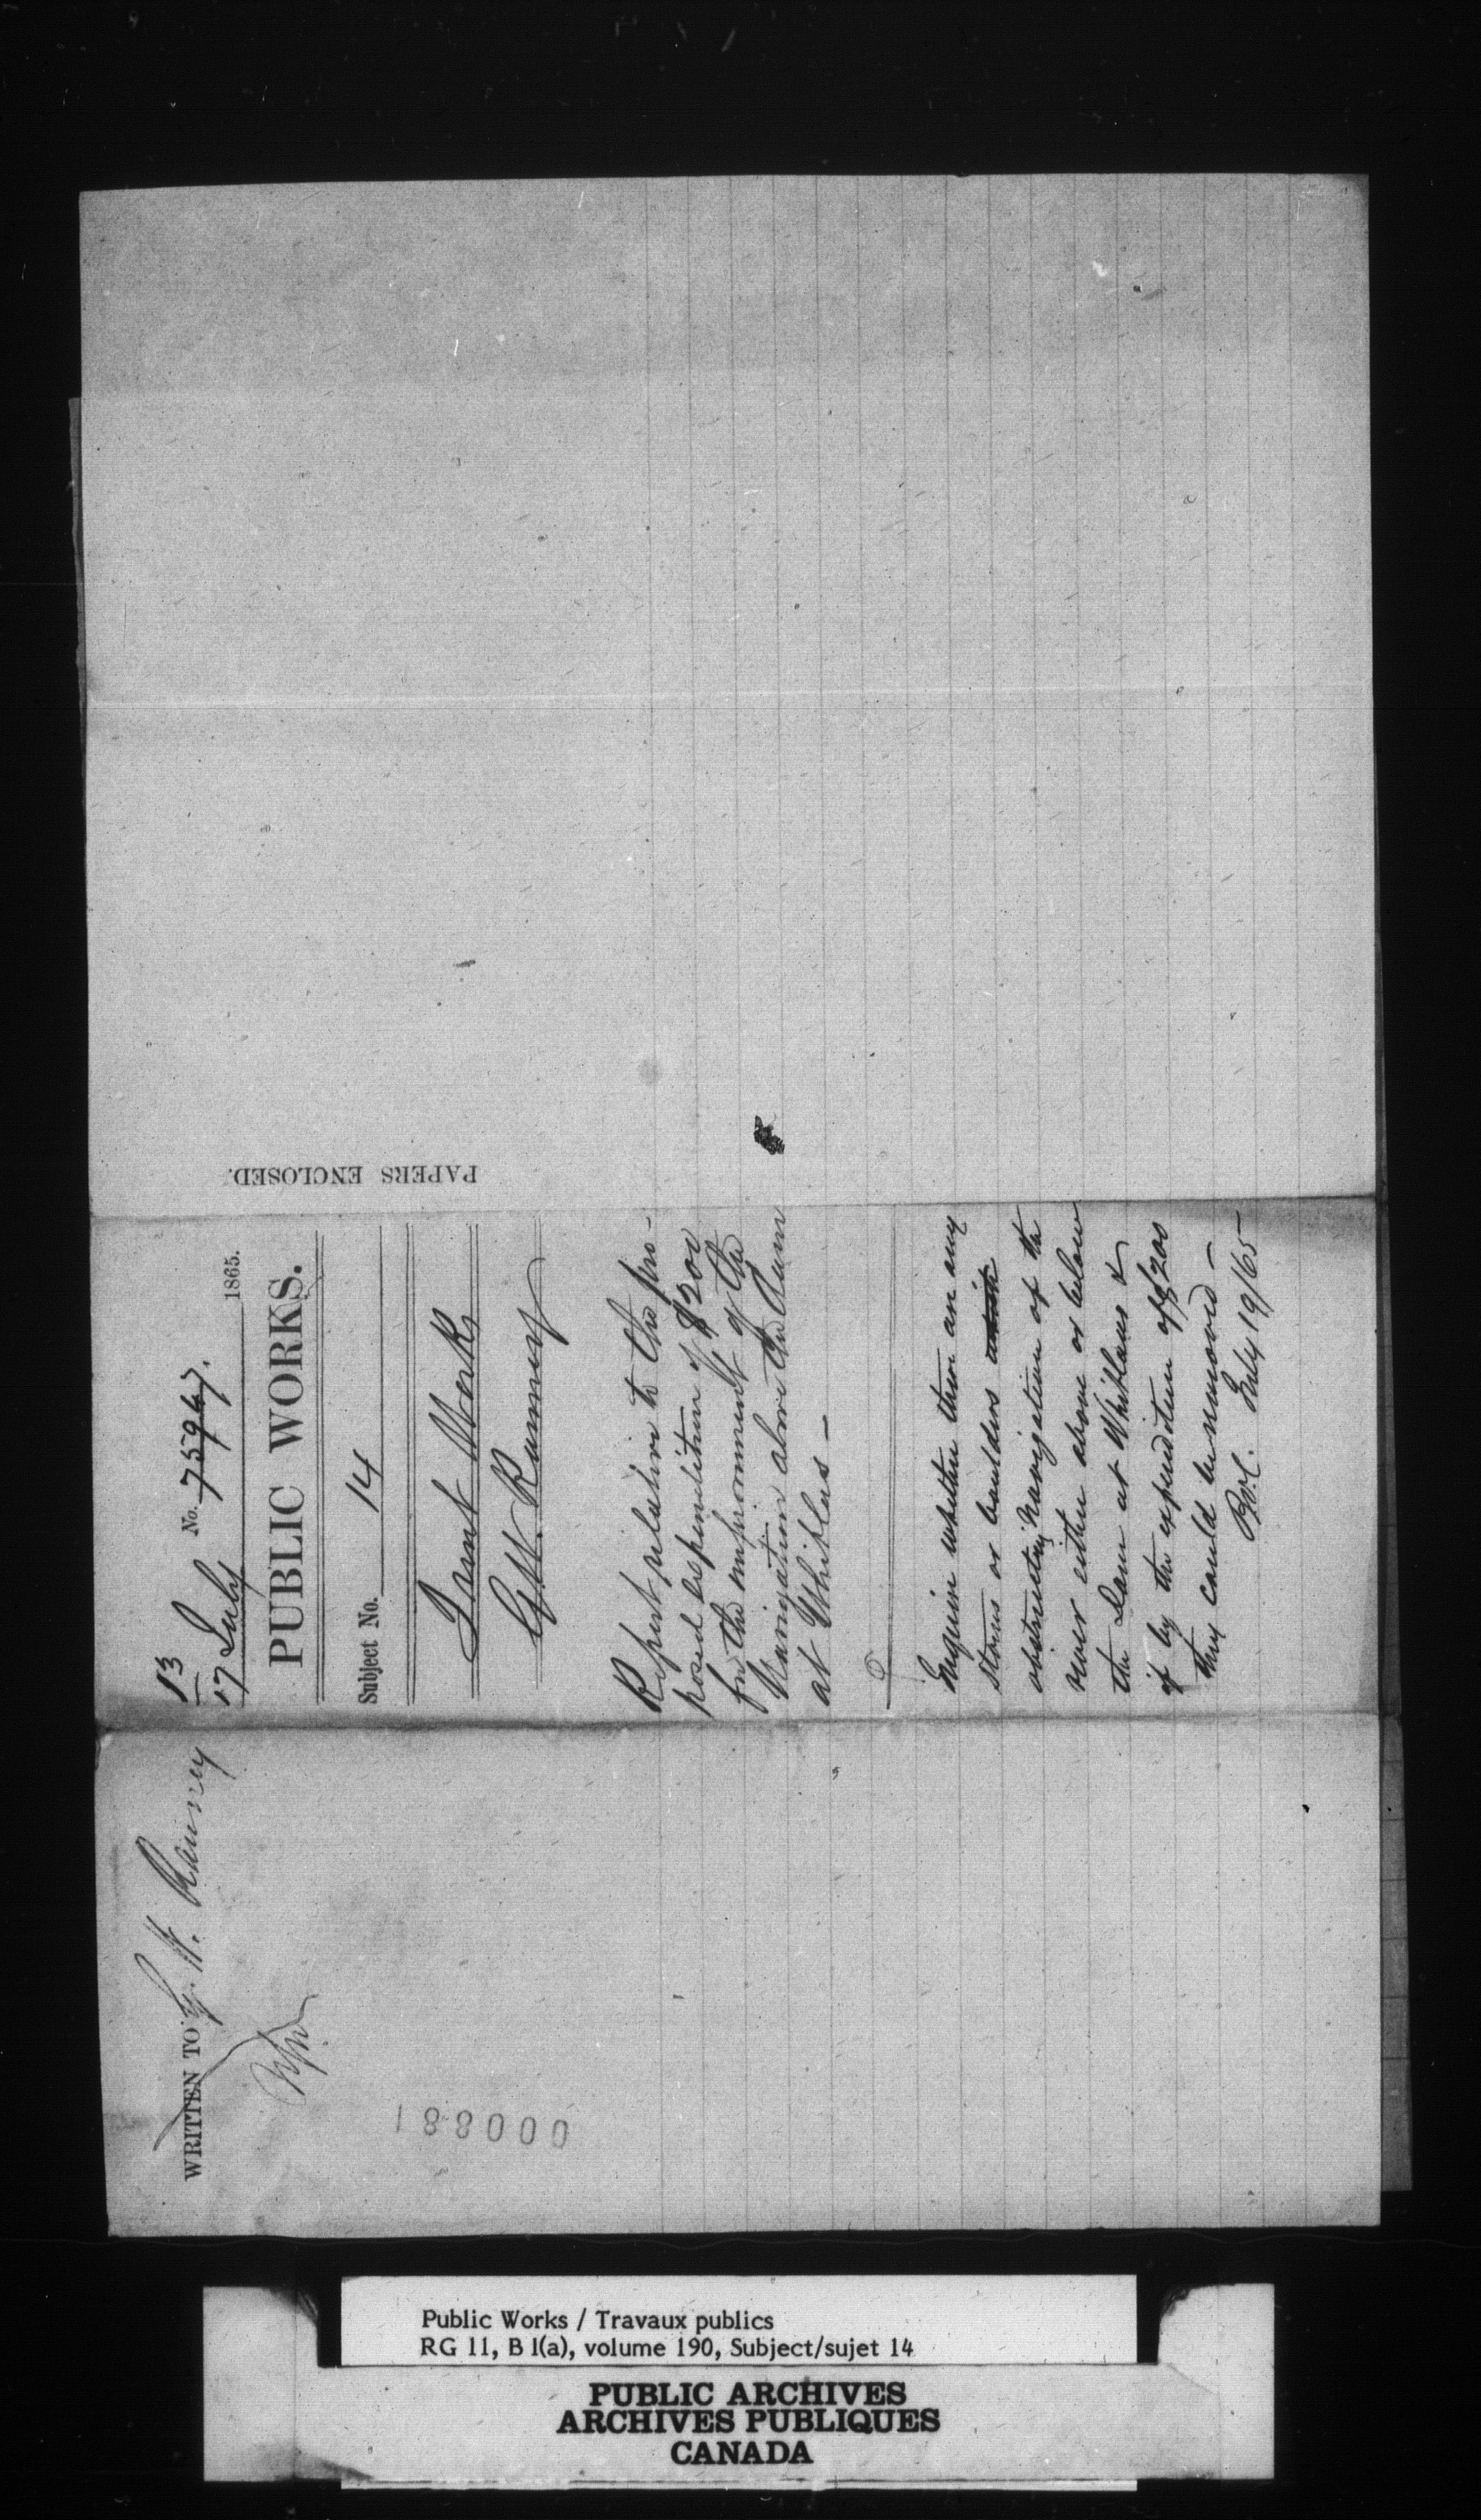 13
17 July No. 75967.
1865.
PUBLIC WORKS.
Subject No. 14
Trent Works
G. W. Ranney
Report relative to the pro-
posed expenditure of $200
for the improvement of the
Navigation above the Dam
at Whitlas –
Enquire whether there are any
stones or boulders
obstructing navigation of the
river either above or below
the Dam at Whitlaws &
if by the expenditure of $200
they could be removed –
July 19/65
PAPERS ENCLOSED.
WRITTEN TO G. W. Ranney
000881
Public Works / Travaux publics
RG 11, B 1(a), volume 190, Subject/sujet 14
PUBLIC ARCHIVES
ARCHIVES PUBLIQUES
CANADA